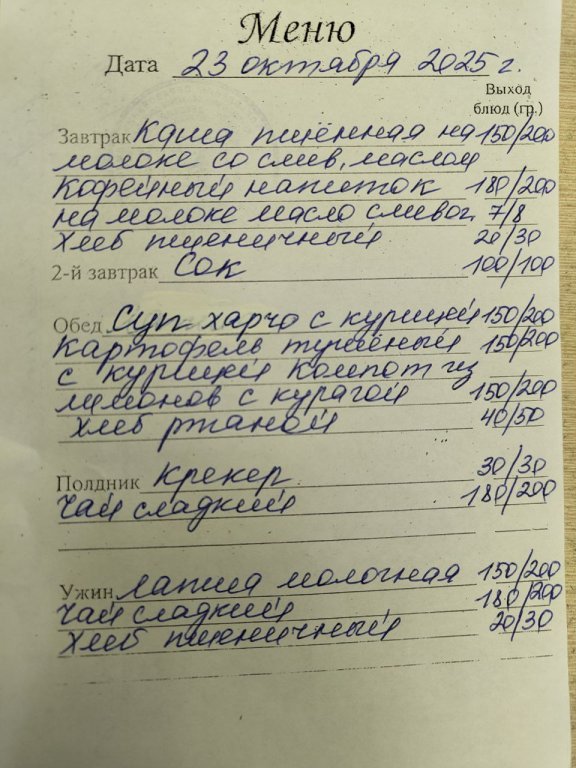 Меню
Дата 23 октября 2025 г.
Выход
блюд (гр.)
Завтрак Каша пшённая на 150/200
молоке со слив. маслом
Кофейный напиток 180/200
на молоке масло сливоч. 7/8
Хлеб пшеничный 20/30
2-й завтрак Сок 100/100
Обед Суп харчо с курицей 150/200
Картофель тушёный 150/200
с курицей Компот из
лимонов с курагой 150/200
Хлеб ржаной 40/50
Полдник Крекер 30/30
Чай сладкий 180/200
Ужин Лапша молочная 150/200
Чай сладкий 180/200
Хлеб пшеничный 20/30